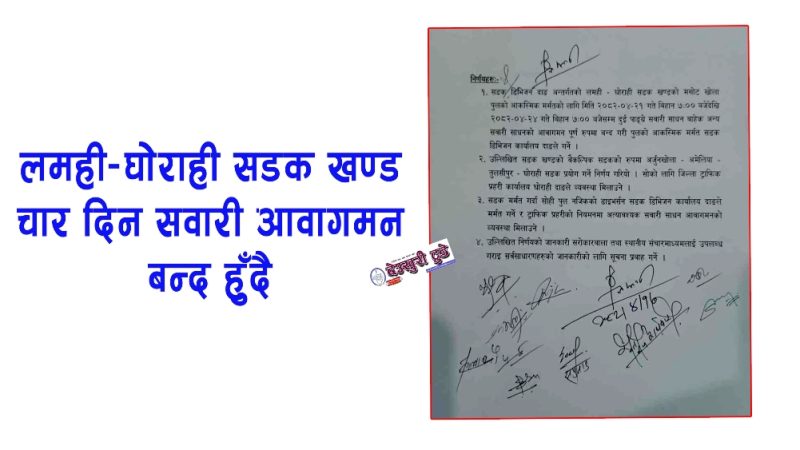 लमही-घोराही सडक खण्ड
चार दिन सवारी आवागमन
बन्द हुँदै
देउखुरी टुडे
निर्णयहरूः-
१. सडक डिभिजन दाङ अन्तर्गतको लमही - घोराही सडक खण्डको मसोट खोला
पुलको आकस्मिक मर्मतको लागि मिति २०८२-०४-२१ गते बिहान ७:०० बजेदेखि
२०८२-०४-२४ गते बिहान ७:०० बजेसम्म दुई पाङ्ग्रे सवारी साधन बाहेक अन्य
सवारी साधनको आवागमन पूर्ण रुपमा बन्द गरी पुलको आकस्मिक मर्मत सडक
डिभिजन कार्यालय दाङले गर्ने ।
२. उल्लिखित सडक खण्डको बैकल्पिक सडकको रुपमा अर्जुनखोला - अमेलिया -
तुलसीपुर - घोराही सडक प्रयोग गर्ने निर्णय गरियो । सोको लागि जिल्ला ट्राफिक
प्रहरी कार्यालय घोराही दाङले व्यवस्था मिलाउने ।
३. सडक मर्मत गर्दा सोही पुल नजिकको डाइभर्सन सडक डिभिजन कार्यालय दाङले
मर्मत गर्ने र ट्राफिक प्रहरीको नियमनमा अत्यावश्यक सवारी साधन आवागमनको
व्यवस्था मिलाउने ।
४. उल्लिखित निर्णयको जानकारी सरोकारवाला तथा स्थानीय संचारमाध्यमलाई उपलब्ध
गराइ सर्वसाधारणहरुको जानकारीको लागि सूचना प्रवाह गर्ने ।